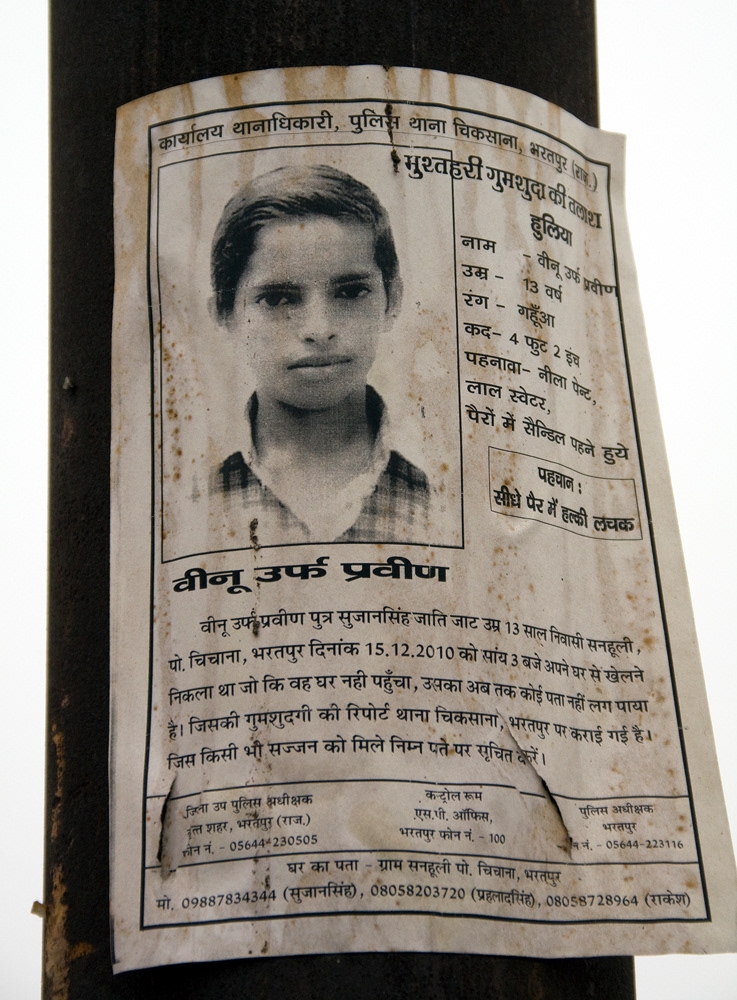 कार्यालय थानाधिकारी, पुलिस थाना चिकसाना, भरतपुर (राज.)
मुश्तहरी गुमशुदा की तलाश
हुलिया
नाम - वीनू उर्फ प्रवीण
उम्र - 13 वर्ष
रंग - गहूँआ
कद- 4 फुट 2 इंच
पहनावा- नीला पेन्ट,
लाल स्वेटर,
पैरों में सैन्डिल पहने हुये
पहचान :
सीधे पैर में हल्की लचक
वीनू उर्फ प्रवीण
वीनू उर्फ प्रवीण पुत्र सुजानसिंह जाति जाट उम्र 13 साल निवासी सनहूली,
पो. चिचाना, भरतपुर दिनांक 15.12.2010 को सांय 3 बजे अपने घर से खेलने
निकला था जो कि वह घर नही पहुँचा, उसका अब तक कोई पता नहीं लग पाया
है। जिसकी गुमशुदगी की रिपोर्ट थाना चिकसाना, भरतपुर पर कराई गई है।
जिस किसी भी सज्जन को मिले निम्न पते पर सूचित करें।
जिला उप पुलिस अधीक्षक
वृत्त शहर, भरतपुर (राज.)
फोन नं. - 05644-230505
कन्ट्रोल रूम
एस.पी. ऑफिस,
भरतपुर फोन नं. - 100
पुलिस अधीक्षक
भरतपुर
नं. - 05644-223116
घर का पता - ग्राम सनहूली पो. चिचाना, भरतपुर
मो. 09887834344 (सुजानसिंह), 08058203720 (प्रहलादसिंह), 08058728964 (राकेश)